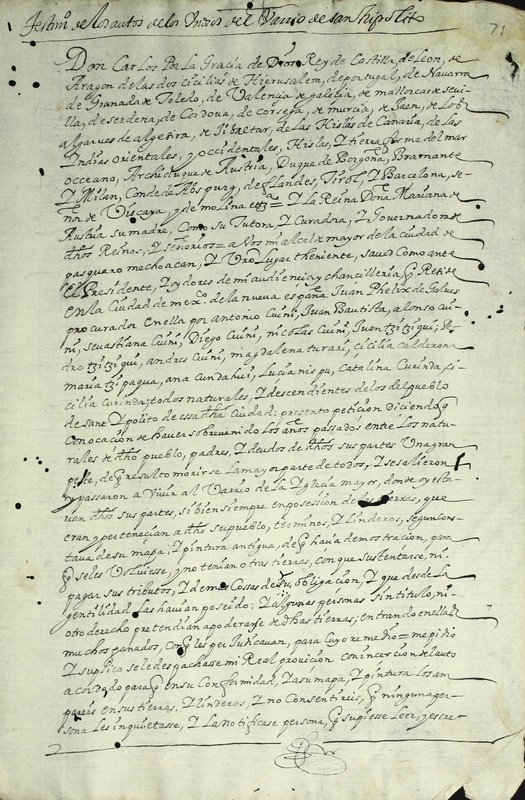 Testimº de los autos de los Yndios del Varrio de san Hipolito
71
Don Carlos Por La Gracia de Dios Rey de Castilla, de Leon, de
Aragon de las dos cicilias de Hierusalem, de portugal, de Navarra
de Granada de Toledo, de Valencia de galicia, de mallorcas de sevi-
lla, de serdena, de Cordova, de corsega, de murcia, de Jaen, de Los
algarves de algesira, de Gibraltar, de Las Hislas de Canaria, de las
Indias orientales, y occidentales, Hislas, y tierra firme del mar
occeano, Archiduque de Austria, Duque de Borgoña, Bramante
y Milan, Conde de Absburg, de flandes, Tirol, y Barcelona, se-
ñor de Viscaya, y de molina etta = y La Reina Doña Mariana de
Austria su madre, Como su Tutora, y Curadora, y Governadora de
dhos Reinos, y señorios = a Vos mi alcalde mayor de la ciudad de
pasquaro mechoacan, y Vro Lugar theniente, saved Como ante
el Presidente, y oydores de mi audiencia, y chancilleria, q Reside
en la Ciudad de mexco de la nueva españa Juan Phelix de Galves
procurador en ella por antonio Cuini, Juan Bautista, alonso Cui-
ni, sevastiana Cuini, Diego Cuini, nicolas Cuini, Juan tzitziqui, Pe-
dro tzitziqui, andres Cuini, magdalena turari, cicilia calderona
maria tzipaqua, ana cundahui, Lucia nispu, catalina Curinda, ci-
cilia curinda; todos naturales, y descendientes de los del pueblo
de sant ypolito de essa dha Ciudad: presento peticion diciendo q
con ocacion de haver sobrevenido Los años passados entre Los natu-
rales de dho pueblo, padres, y deudos de dhos sus partes Una gran
peste, de q resulto morirse La mayor parte de todos, y se salieron
y passaron a vivir al Varrio de la Yglecia mayor, donde oy esta-
van dhos sus partes, si bien siempre en possesion de las tierras, que
eran y pertenecian a dho su pueblo, terminos, y Linderos, segun cons-
tava de su mapa, y pintura antigua, de q hacia demostracion, para
q se les Volviesse, y no tenian otras tierras, con que sustentarse, ni
pagar sus tributos, y demas Cossas de su obligacion, y que desde La
gentilidad Las havian poseido: y algunas personas sin titulo, ni
otro derecho pretendian apoderarse de dhas tierras; entrando en ellas
muchos ganados, con q les perjuhicavan, para cuyo remedio = me pidio
y suplico se le despachase mi Real provicion con incercion del auto
acordado para q en su Conformidad, y a su mapa, y pintura Los am-
pareis en sus tierras, y Linderos, y no Consentireis, q ninguna per-
sona Les inquietasse, y La notificase persona, q supiesse Leer, y escre-